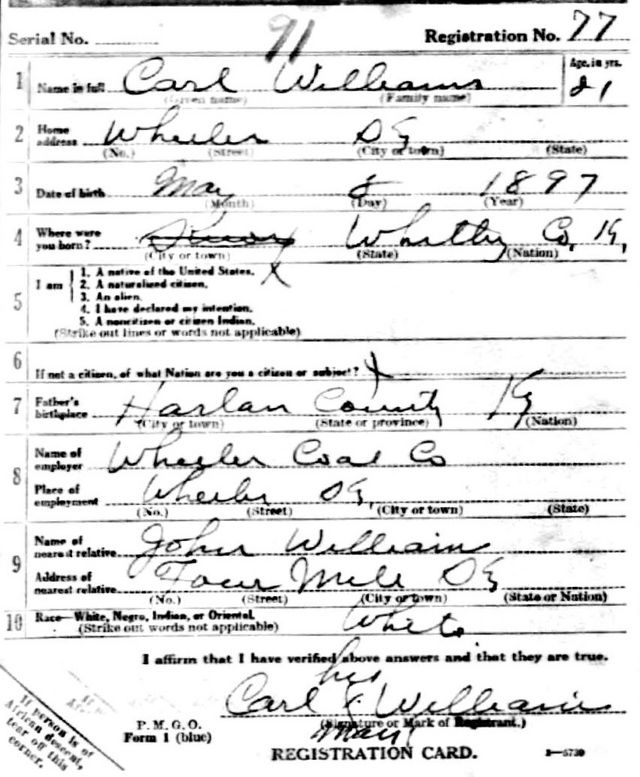 Serial No. 91 Registration No. 77
1 Name in full Carl Williams Age, in yrs. 21
(Given name) (Family name)
2 Home address Wheeler
(No.) (Street) (City or town) (State)
3 Date of birth May 5 1897
(Month) (Day) (Year)
4 Where were you born? Whitley Co, K,
(City or town) (State) (Nation)
5 I am
1. A native of the United States. X
2. A naturalized citizen.
3. An alien.
4. I have declared my intention.
5. A noncitizen or citizen Indian.
(Strike out lines or words not applicable)
6 If not a citizen, of what Nation are you a citizen or subject? X
7 Father's birthplace Harlan County Ky
(City or town) (State or province) (Nation)
8 Name of employer Wheeler Coal Co
Place of employment Wheeler
(No.) (Street) (City or town) (State)
9 Name of nearest relative John William
Address of nearest relative Four Mile
(No.) (Street) (City or town) (State or Nation)
10 Race—White, Negro, Indian, or Oriental. White
(Strike out words not applicable)
I affirm that I have verified above answers and that they are true.
his
Carl X William
(Signature or Mark of Registrant.)
Mark
P. M. G. O.
Form 1 (blue)
REGISTRATION CARD. 3—5739
If person is of
African descent,
tear off this
corner.